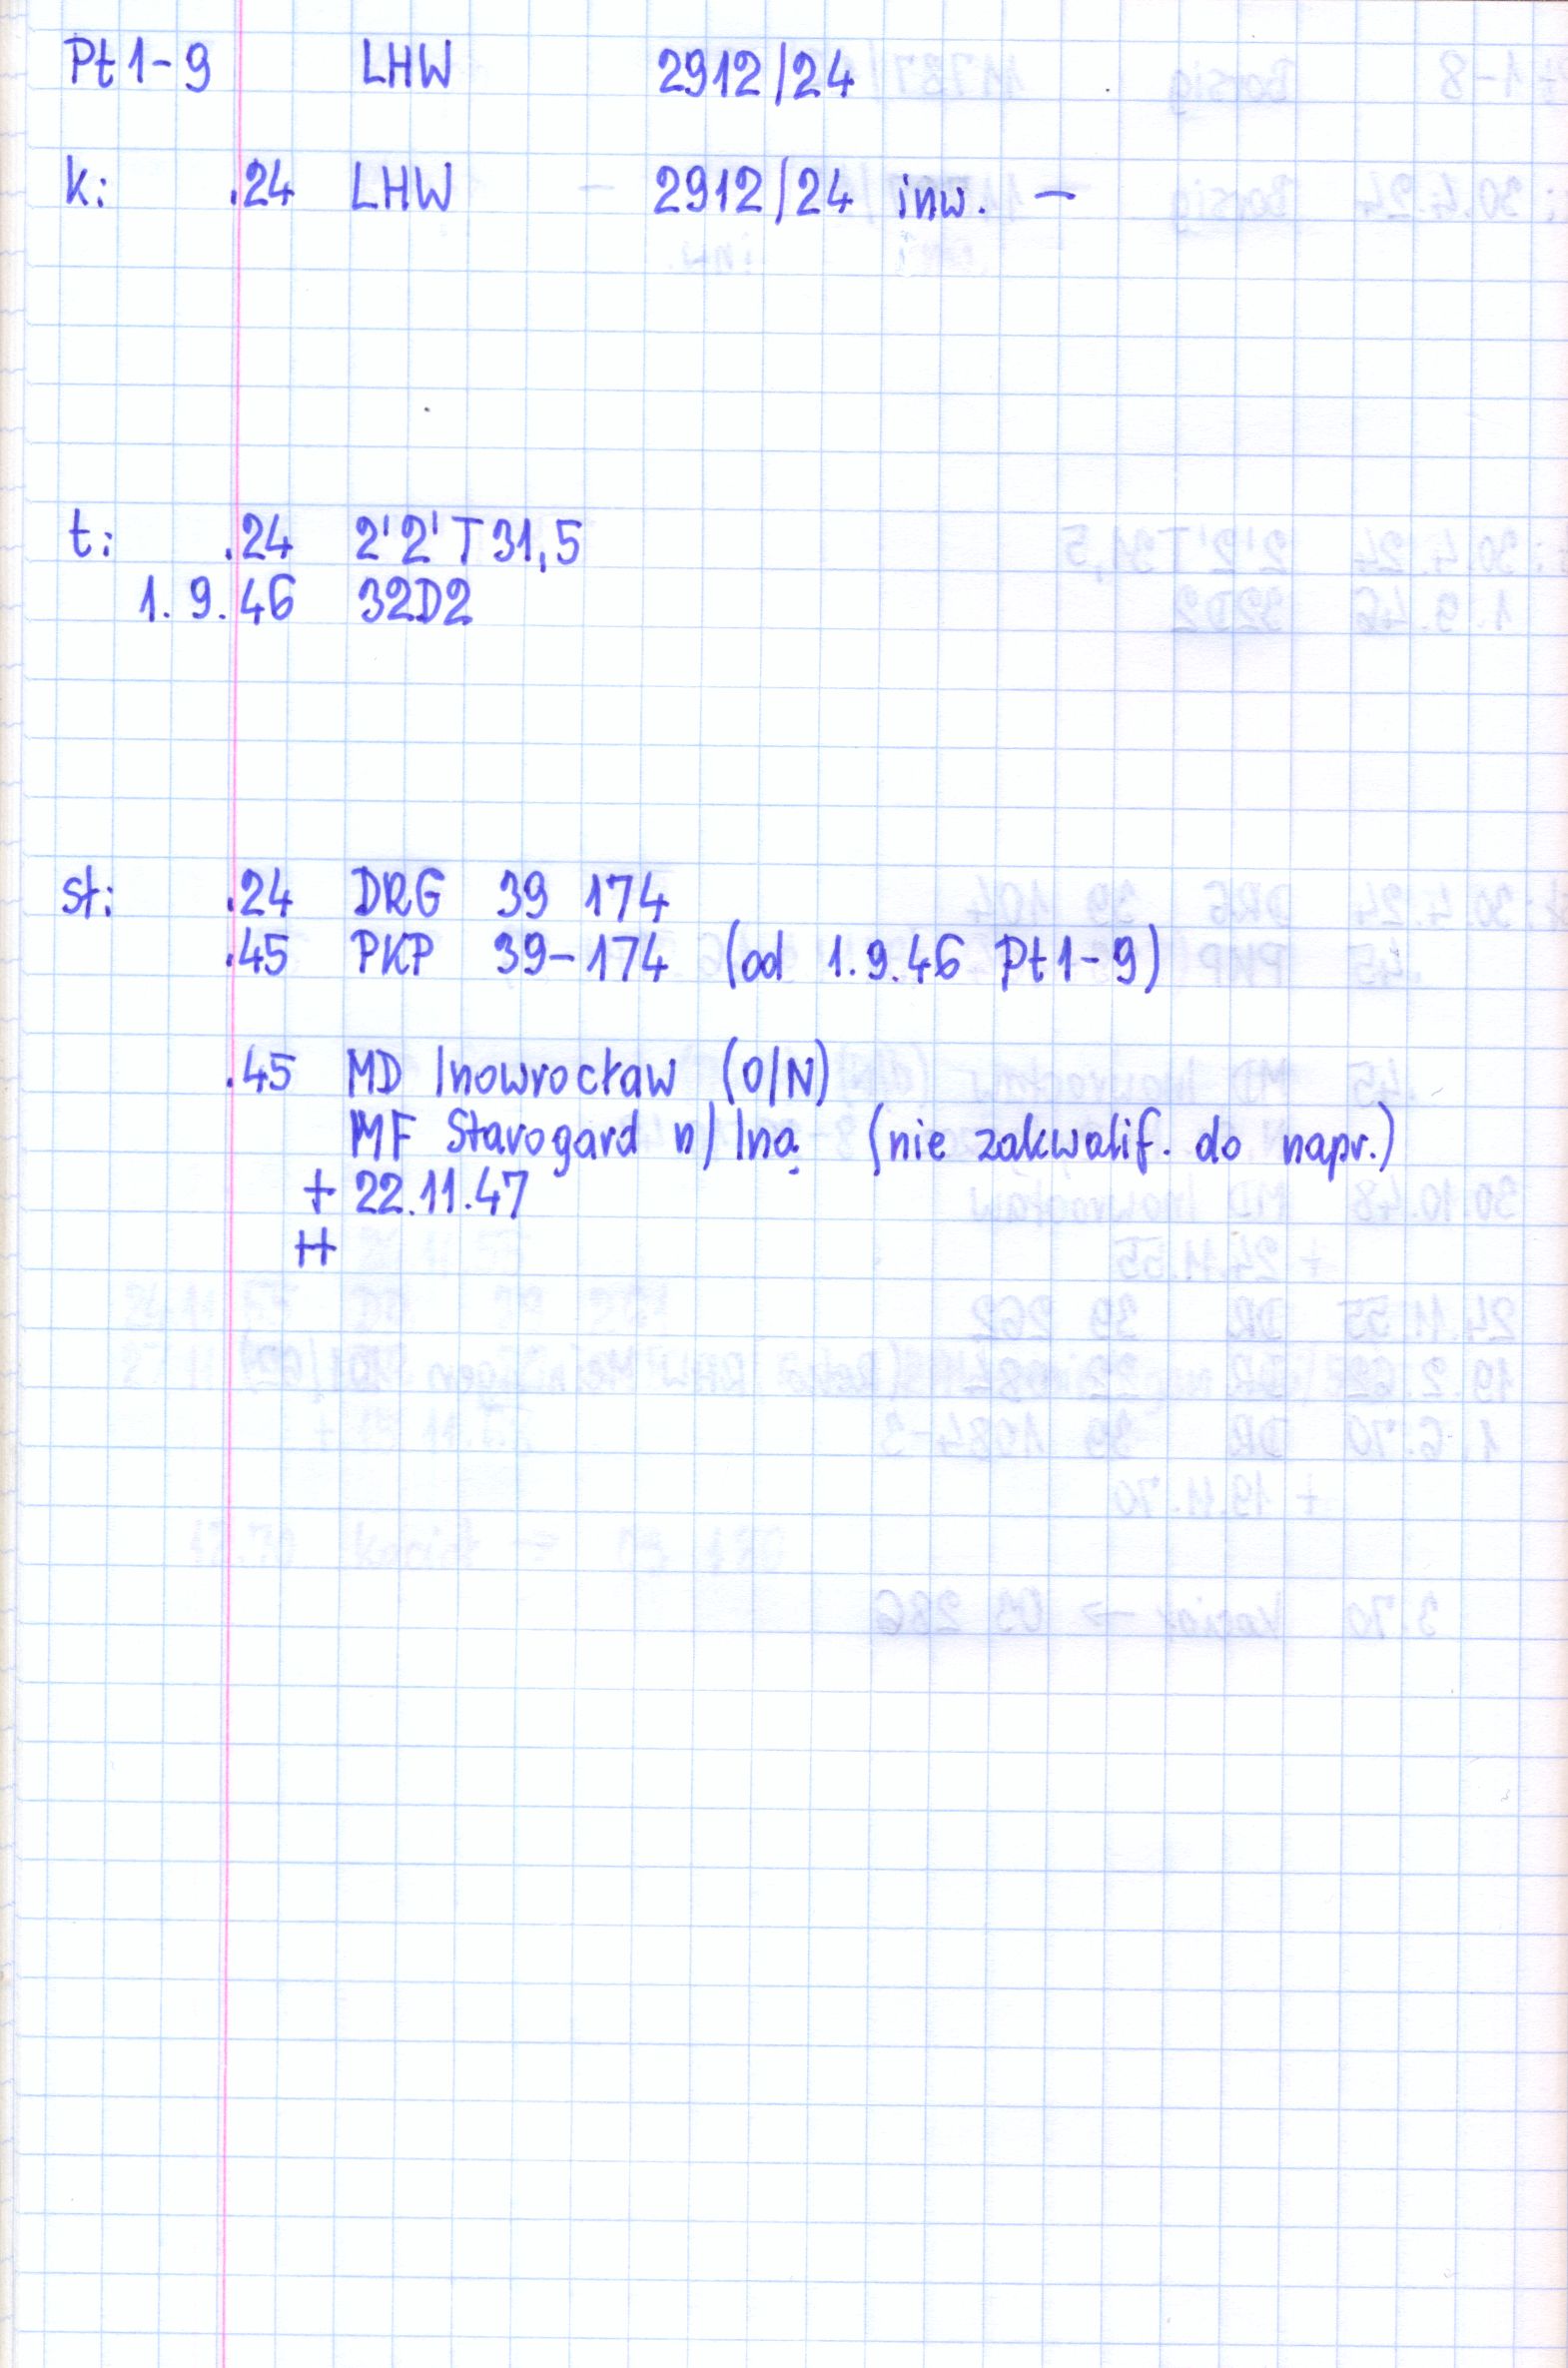 Pt1-9 LHW 2912/24
k: .24 LHW 2912/24 inw. –
t: .24 2'2'T31,5
1.9.46 32D2
st: .24 DRG 39 174
.45 PKP 39-174 (od 1.9.46 Pt1-9)
.45 MD Inowrocław (O/N)
MF Starogard n/Iną (nie zakwalif. do napr.)
+ 22.11.47
++